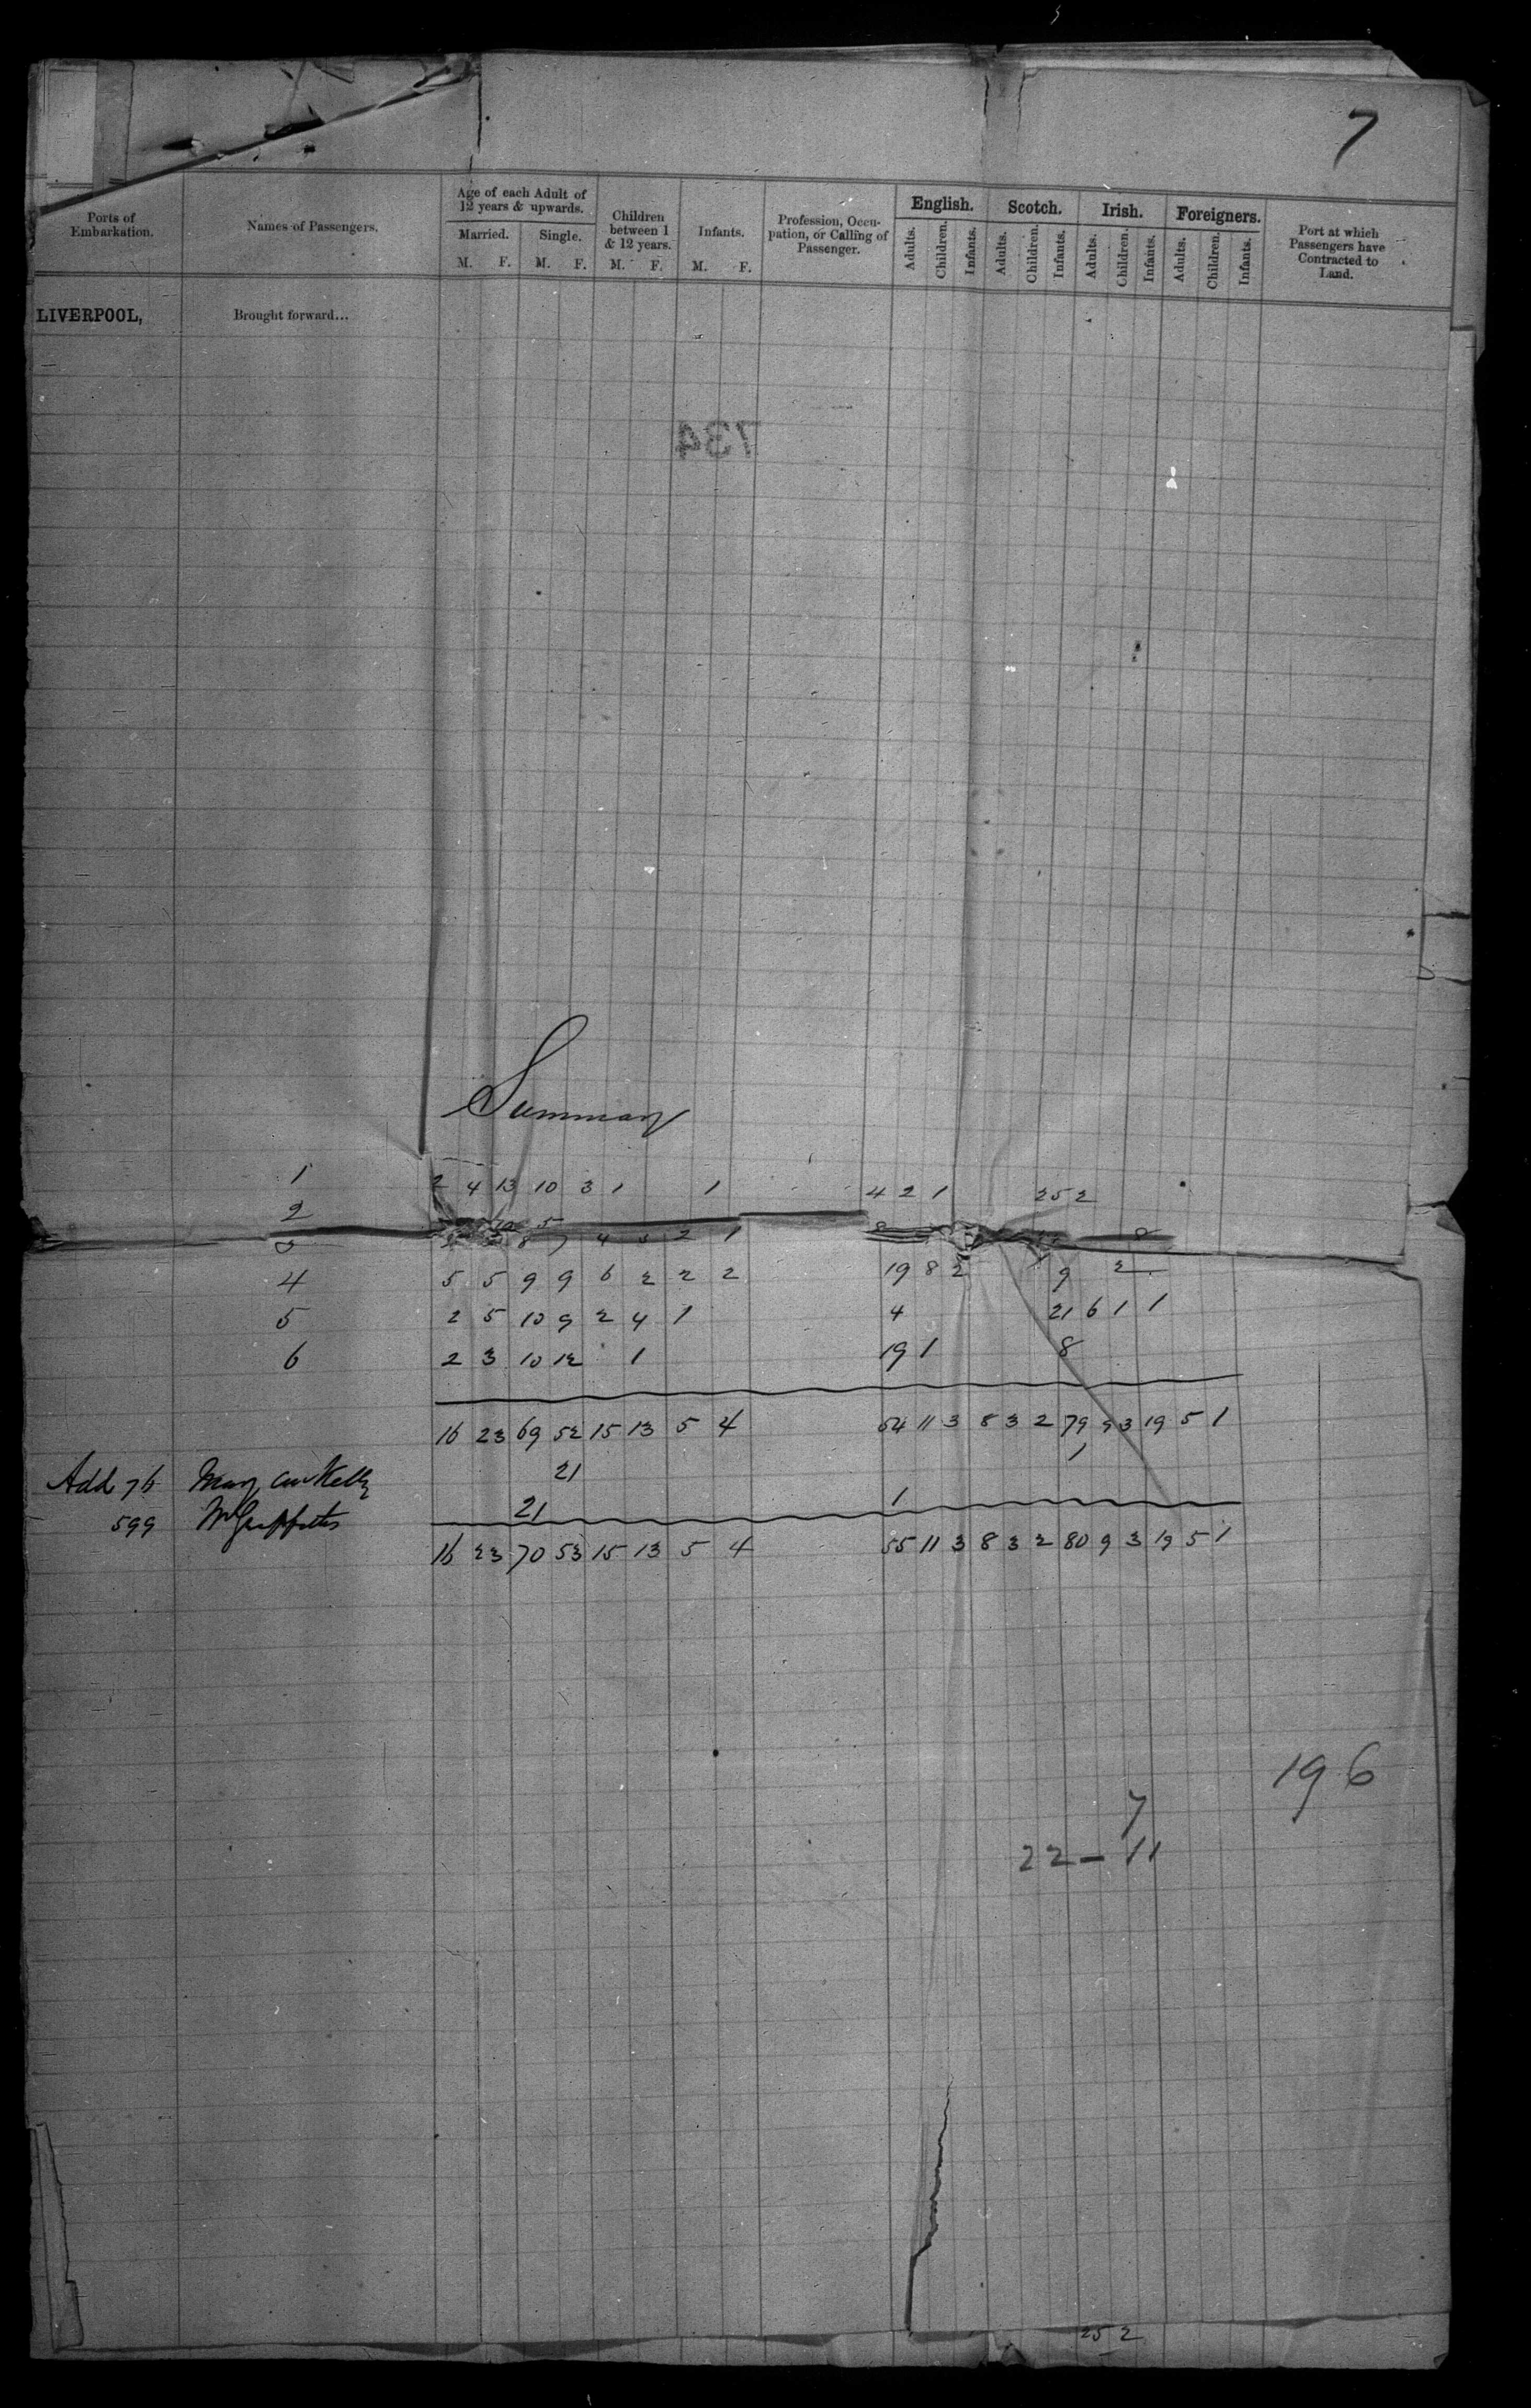 7
Ports of Embarkation.
Names of Passengers.
Age of each Adult of 12 years & upwards.
Married. Single.
M. F. M. F.
Children between 1 & 12 years.
M. F.
Infants.
M. F.
Profession, Occupation, or Calling of Passenger.
English. Scotch. Irish. Foreigners.
Adults. Children. Infants. Adults. Children. Infants. Adults. Children. Infants. Adults. Children. Infants.
Port at which Passengers have Contracted to Land.
LIVERPOOL, Brought forward...
734
Summary
1 2 4 13 10 3 1 1 4 2 1 25 2
2 5
8 7 4 2 1
4 5 5 9 9 6 2 2 2 19 8 2 9 2
5 2 5 10 9 2 4 1 4 21 6 1 1
6 2 3 10 12 1 19 1 8
16 23 69 52 15 13 5 4 54 11 3 8 3 2 79 9 3 19 5 1
Add 76 Mary Kelly 21 1
599 Griffiths 21 1
16 23 70 53 15 13 5 4 55 11 3 8 3 2 80 9 3 19 5 1
196
7
22 - 11
25 2